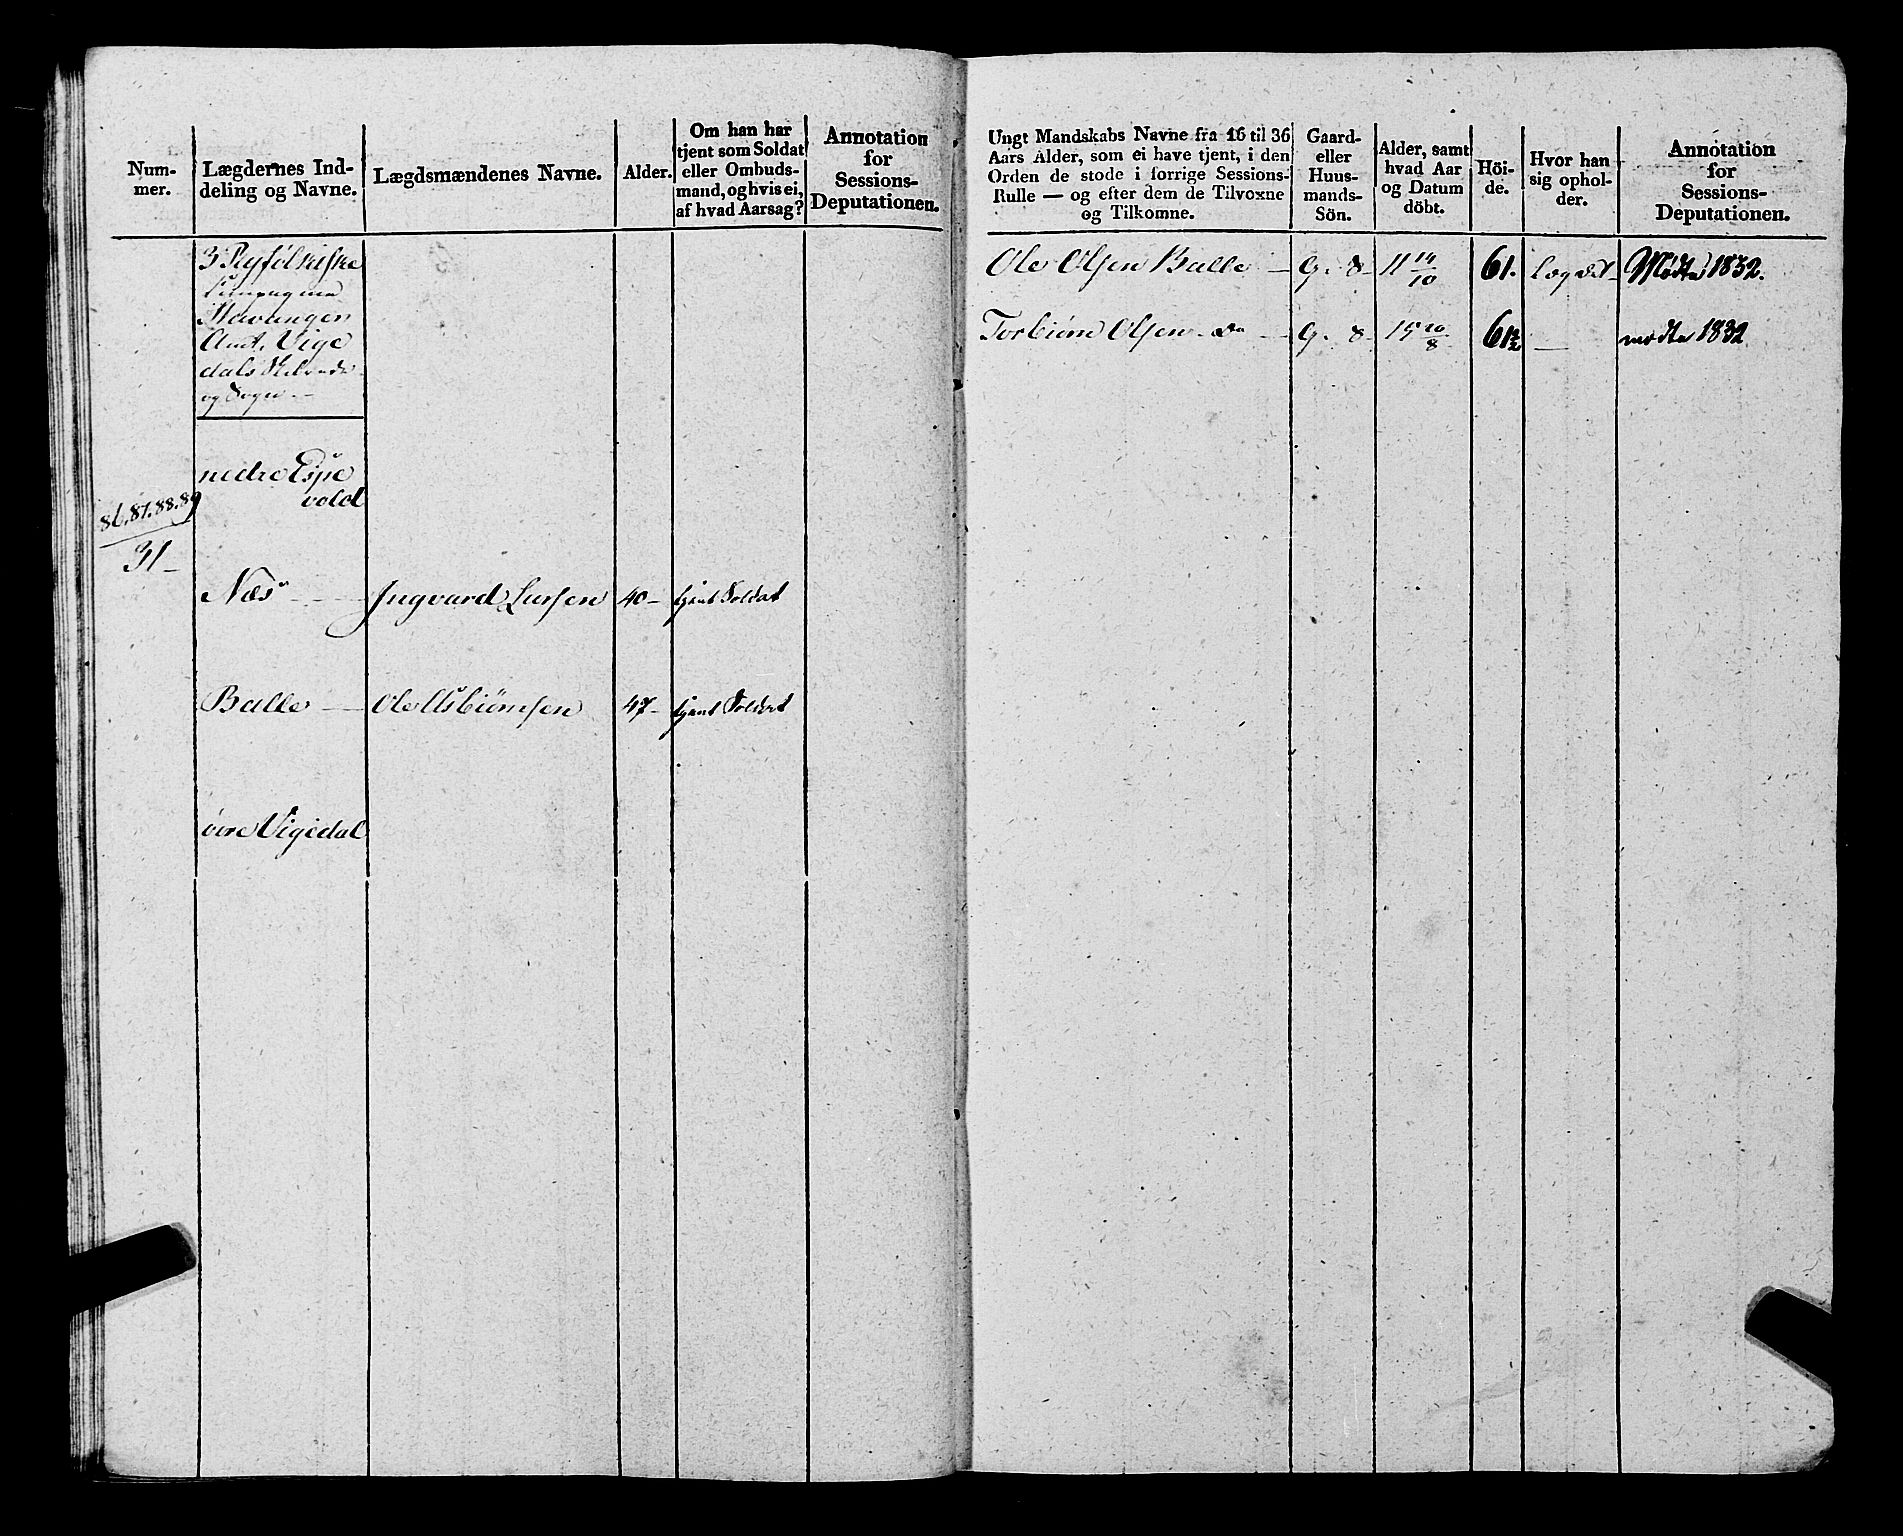 Num-
mer.
Lægdernes Ind-
deling og Navne.
Lægdsmændenes Navne.
Alder.
Om han har
tjent som Soldat
eller Ombuds-
mand, og hvis ei,
af hvad Aarsag?
Annotation
for
Sessions-
Deputationen.
3 Ryfölkiske
Compagnie
Stavanger
Amt. Vige
dals Skibrede
og Sogn
nedre Espe
vold
86.87.88.89
31
Næs Ingvard Larsen 40 tjent Soldat
Balle Ole Asbiørnsen 47 tjent Soldat
övre Vigedal
Ungt Mandskabs Navne fra 16 til 36
Aars Alder, som ei have tjent, i den
Orden de stode i forrige Sessions-
Rulle — og efter dem de Tilvoxne
og Tilkomne.
Gaard-
eller
Huus-
mands-
Sön.
Alder, samt
hvad Aar
og Datum
döbt.
Höi-
de.
Hvor han
sig ophol-
der.
Annotation
for
Sessions-
Deputationen.
Ole Olsen Balle — G. 8 11 14/10 61. Lægdet Mødte 1832.
Torbiørn Olsen do — G. 8 15 20/8 61½ — mødte 1832